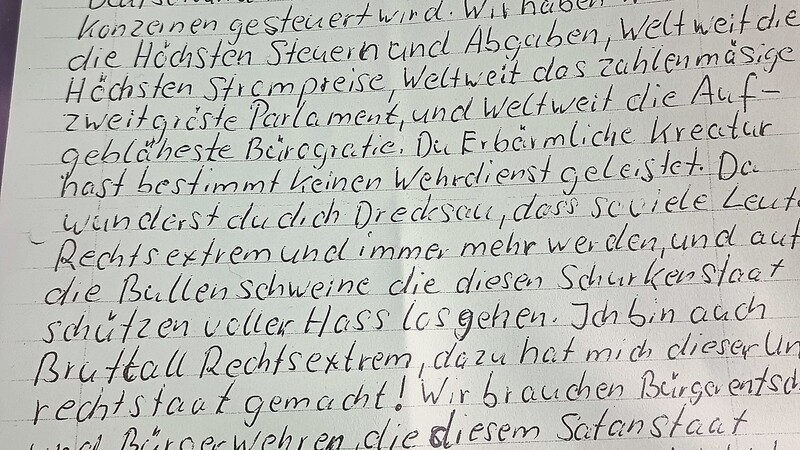 Konzernen gesteuert wird. Wir haben
die Höchsten Steuern und Abgaben, Weltweit die
Höchsten Strompreise, Weltweit das zahlenmäsige
zweitgröste Parlament, und Weltweit die Auf-
gebläheste Bürogratie. Du Erbärmliche Kreatur
hast bestimmt keinen Wehrdienst geleistet. Da
wunderst du dich Drecksau, dass so viele Leute
Rechtsextrem und immer mehr werden, und auf
die Bullenschweine die diesen Schurkenstaat
schützen voller Hass losgehen. Ich bin auch
Bruttall Rechtsextrem, dazu hat mich dieser Un
rechtstaat gemacht! Wir brauchen Bürgerentsch
und Bürgerwehren, die diesem Satanstaat